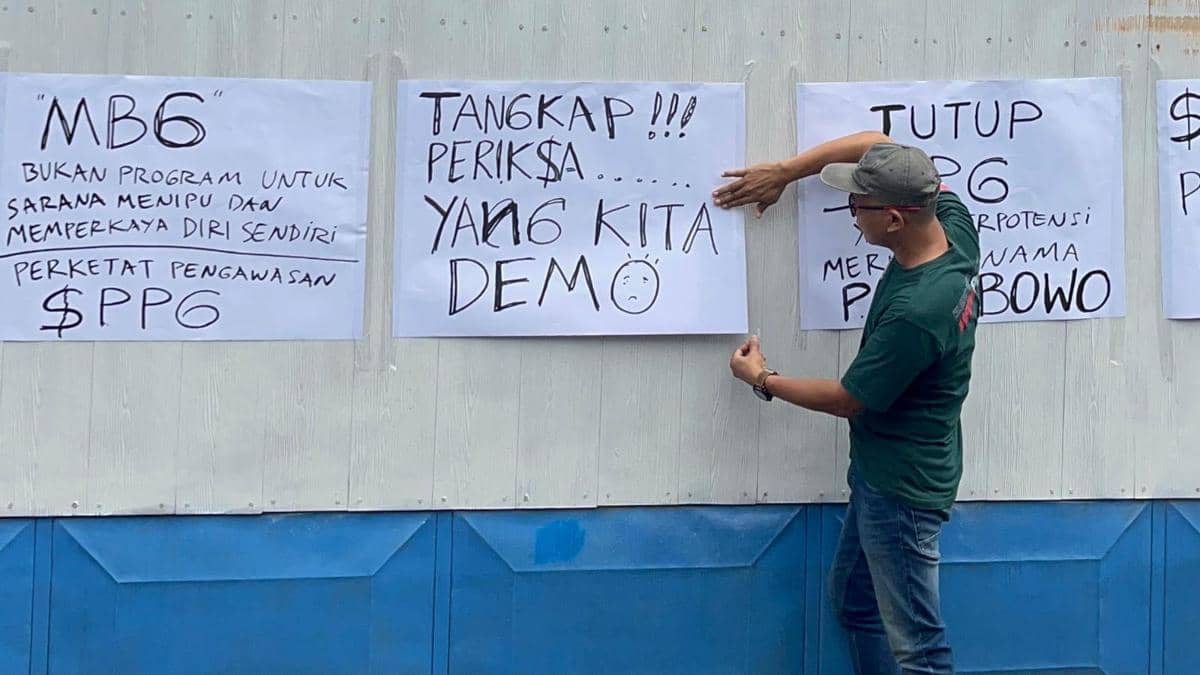 "MBG"
BUKAN PROGRAM UNTUK
SARANA MENIPU DAN
MEMPERKAYA DIRI SENDIRI
PERKETAT PENGAWASAN
$PPG
TANGKAP !!!
PERIK$A.......
YANG KITA
DEMO
TUTUP
PG
RPOTENSI
MER NAMA
P BOWO
$
P